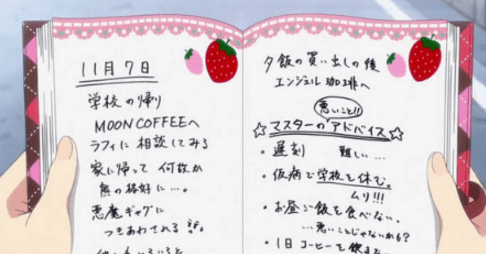 11月7日
学校の帰り
MOON COFFEEへ
ラフィに相談してみる
家に帰って何故か
熊の格好に…。
悪魔ギャグに
つきあわされる
夕飯の買い出しの後
エンジェル珈琲へ
悪いこと!!
☆マスターのアドバイス☆
・遅刻 難しい…
・仮病で学校を休む。
ムリ!!!
・お昼ご飯を食べない。
…悪いことじゃないかも?
・1日コーヒーを飲まな